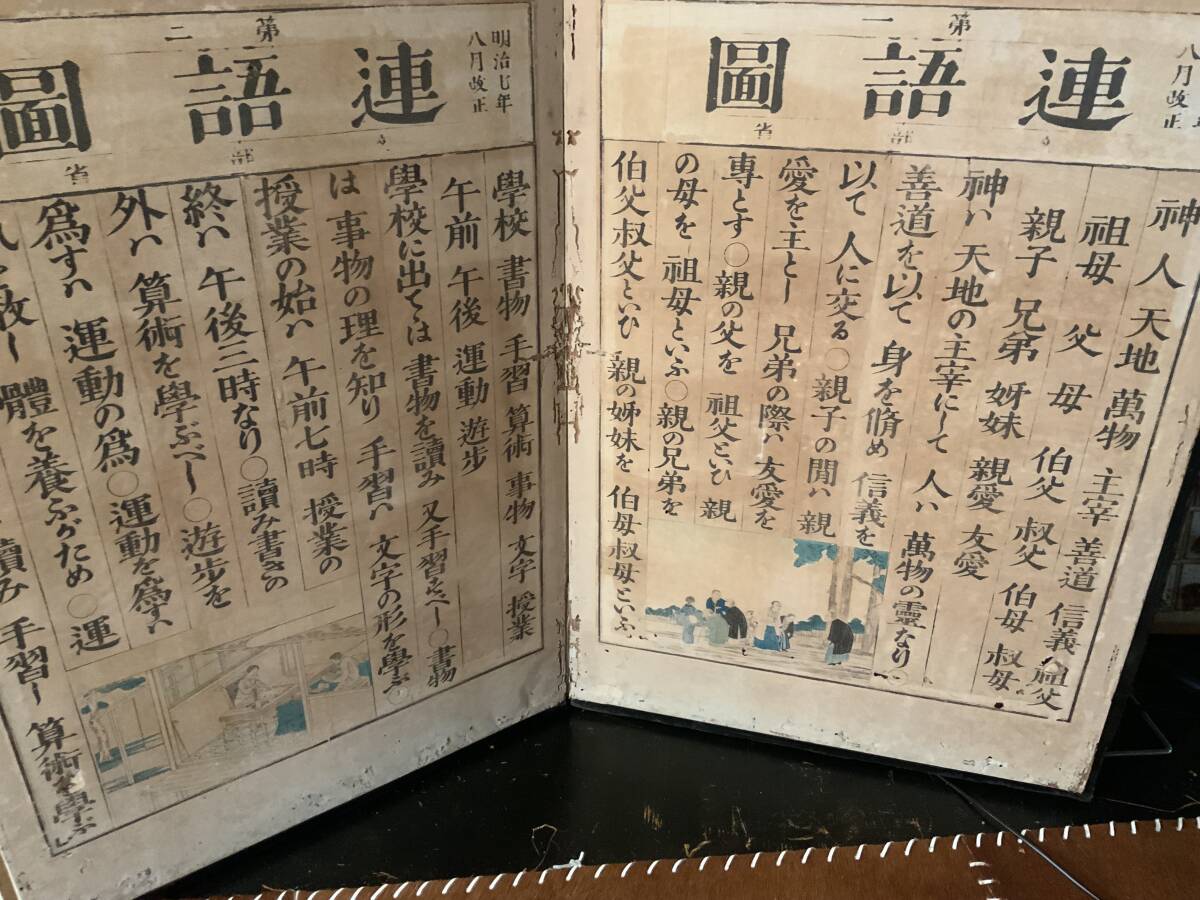 第一
連語圖
八月改正
部省
神 人 天地 萬物 主宰 善道 信義 祖父
祖母 父 母 伯父 叔父 伯母 叔母
親子 兄弟 姊妹 親愛 友愛
神ハ 天地の主宰にして 人ハ 萬物の靈なり○
善道を以て 身を脩め 信義を
以て 人に交る○親子の間ハ 親
愛を主とし 兄弟の際ハ 友愛を
專とす○親の父を 祖父といひ 親
の母を 祖母といふ○親の兄弟を
伯父叔父といひ 親の姊妹を 伯母叔母といふ
第二
連語圖
明治七年
八月改正
部省
學校 書物 手習 算術 事物 文字 授業
午前 午後 運動 遊步
學校に出ては 書物を讀み 又手習すべし○書物
は 事物の理を知り 手習ハ 文字の形を學ぶ○
授業の始ハ 午前七時 授業の
終ハ 午後三時なり○讀み書きの
外ハ 算術を學ぶべし○遊步を
爲すハ 運動の爲○運動を爲すハ
體を養ふがため○運
讀み 手習し 算術を學ぶ